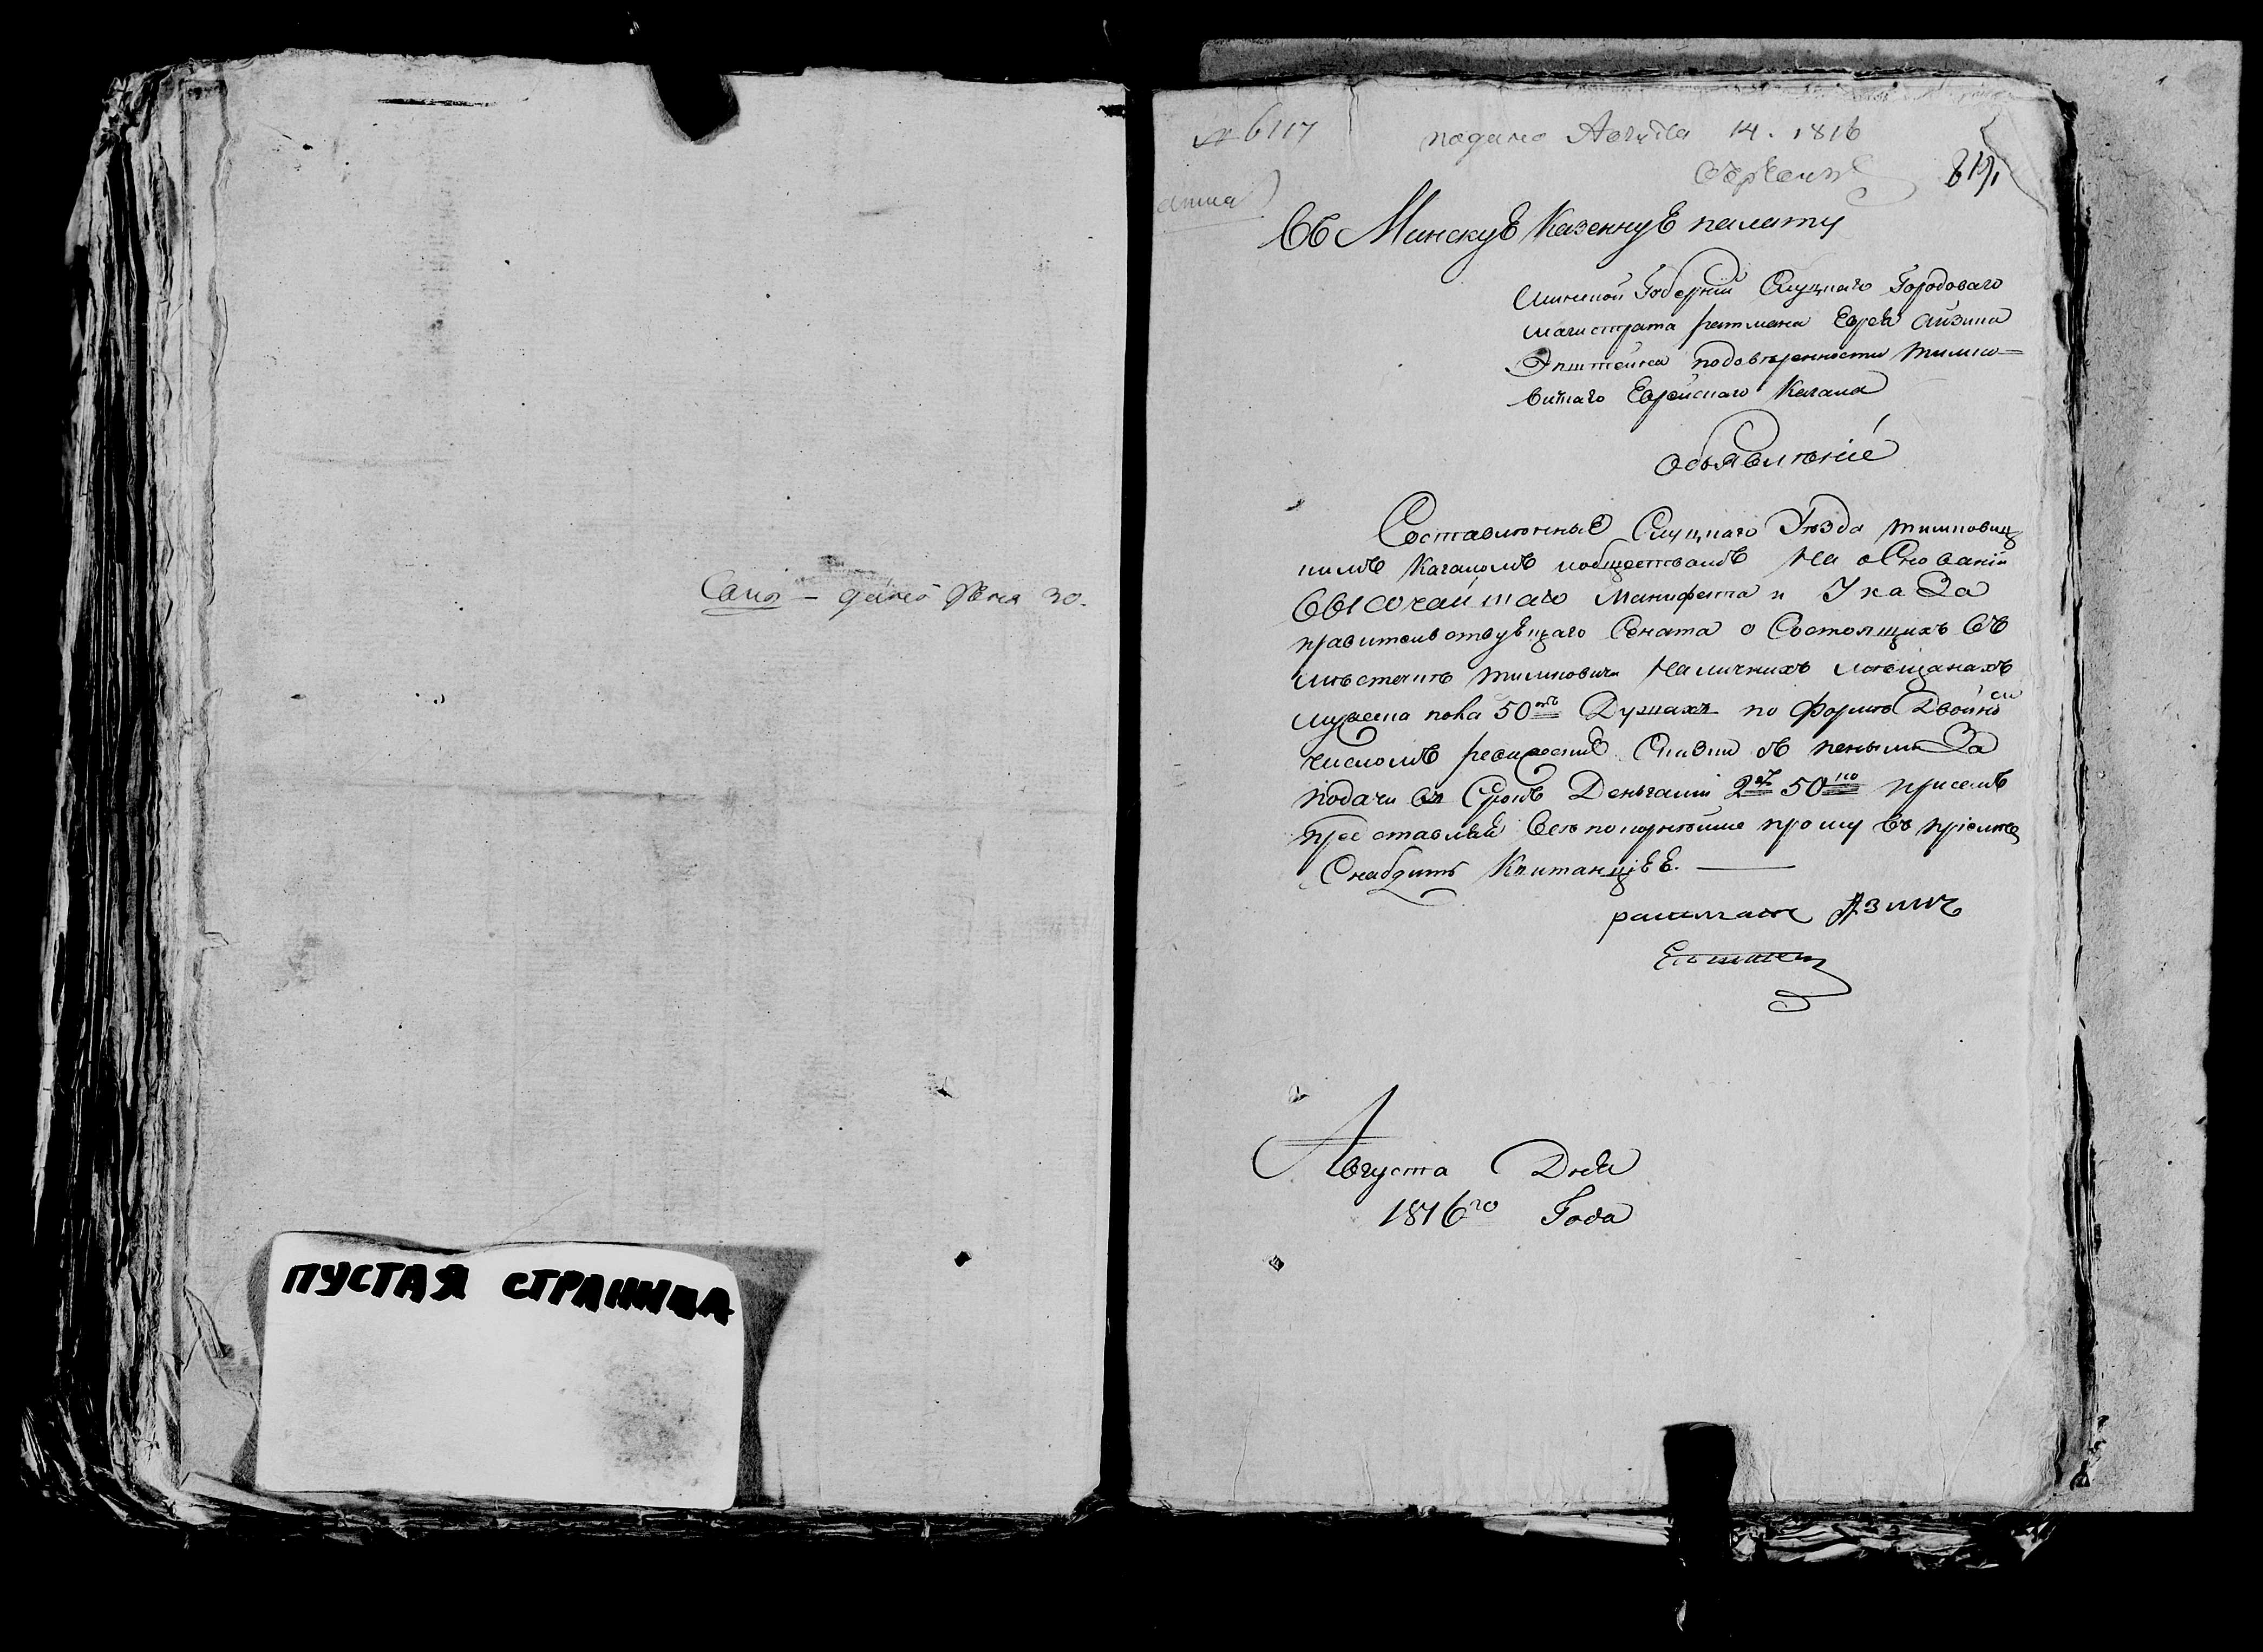 дано
30.
ПУСТАЯ СТРАНИЦА
№ 6117
подано Августа 14. 1816
Въ Минскую Казенную палату
Минской Губерніи Слуцкаго Городоваго
магистрата ратмана Еврея Айзика
Эпштейна подовъренности тимко=
вицкаго Еврейскаго Кагала
Объявленіе
Составленные Слуцкаго Уѣзда тимковиц
кимъ Кагаломъ и обществомъ На оСнованіи
ВЫСОЧАЙшаго Манифеста и Указа
правительствующаго Сената о Состоящихъ Въ
мѣстечкѣ тимковичи Наличныхъ мѣщанахъ
мужеска пола 50ти Душахъ по Формѣ Двойнымъ
числомъ ревижскіе Сказки съ пеньми За
подачи въ Срокъ Деньгами 2 50 присемъ
представляя Всепокорнѣйше прошу въ пріемѣ
Снабдить Квитанціею.
ратман Азик
Епштеин
Августа Дня
1816го Года